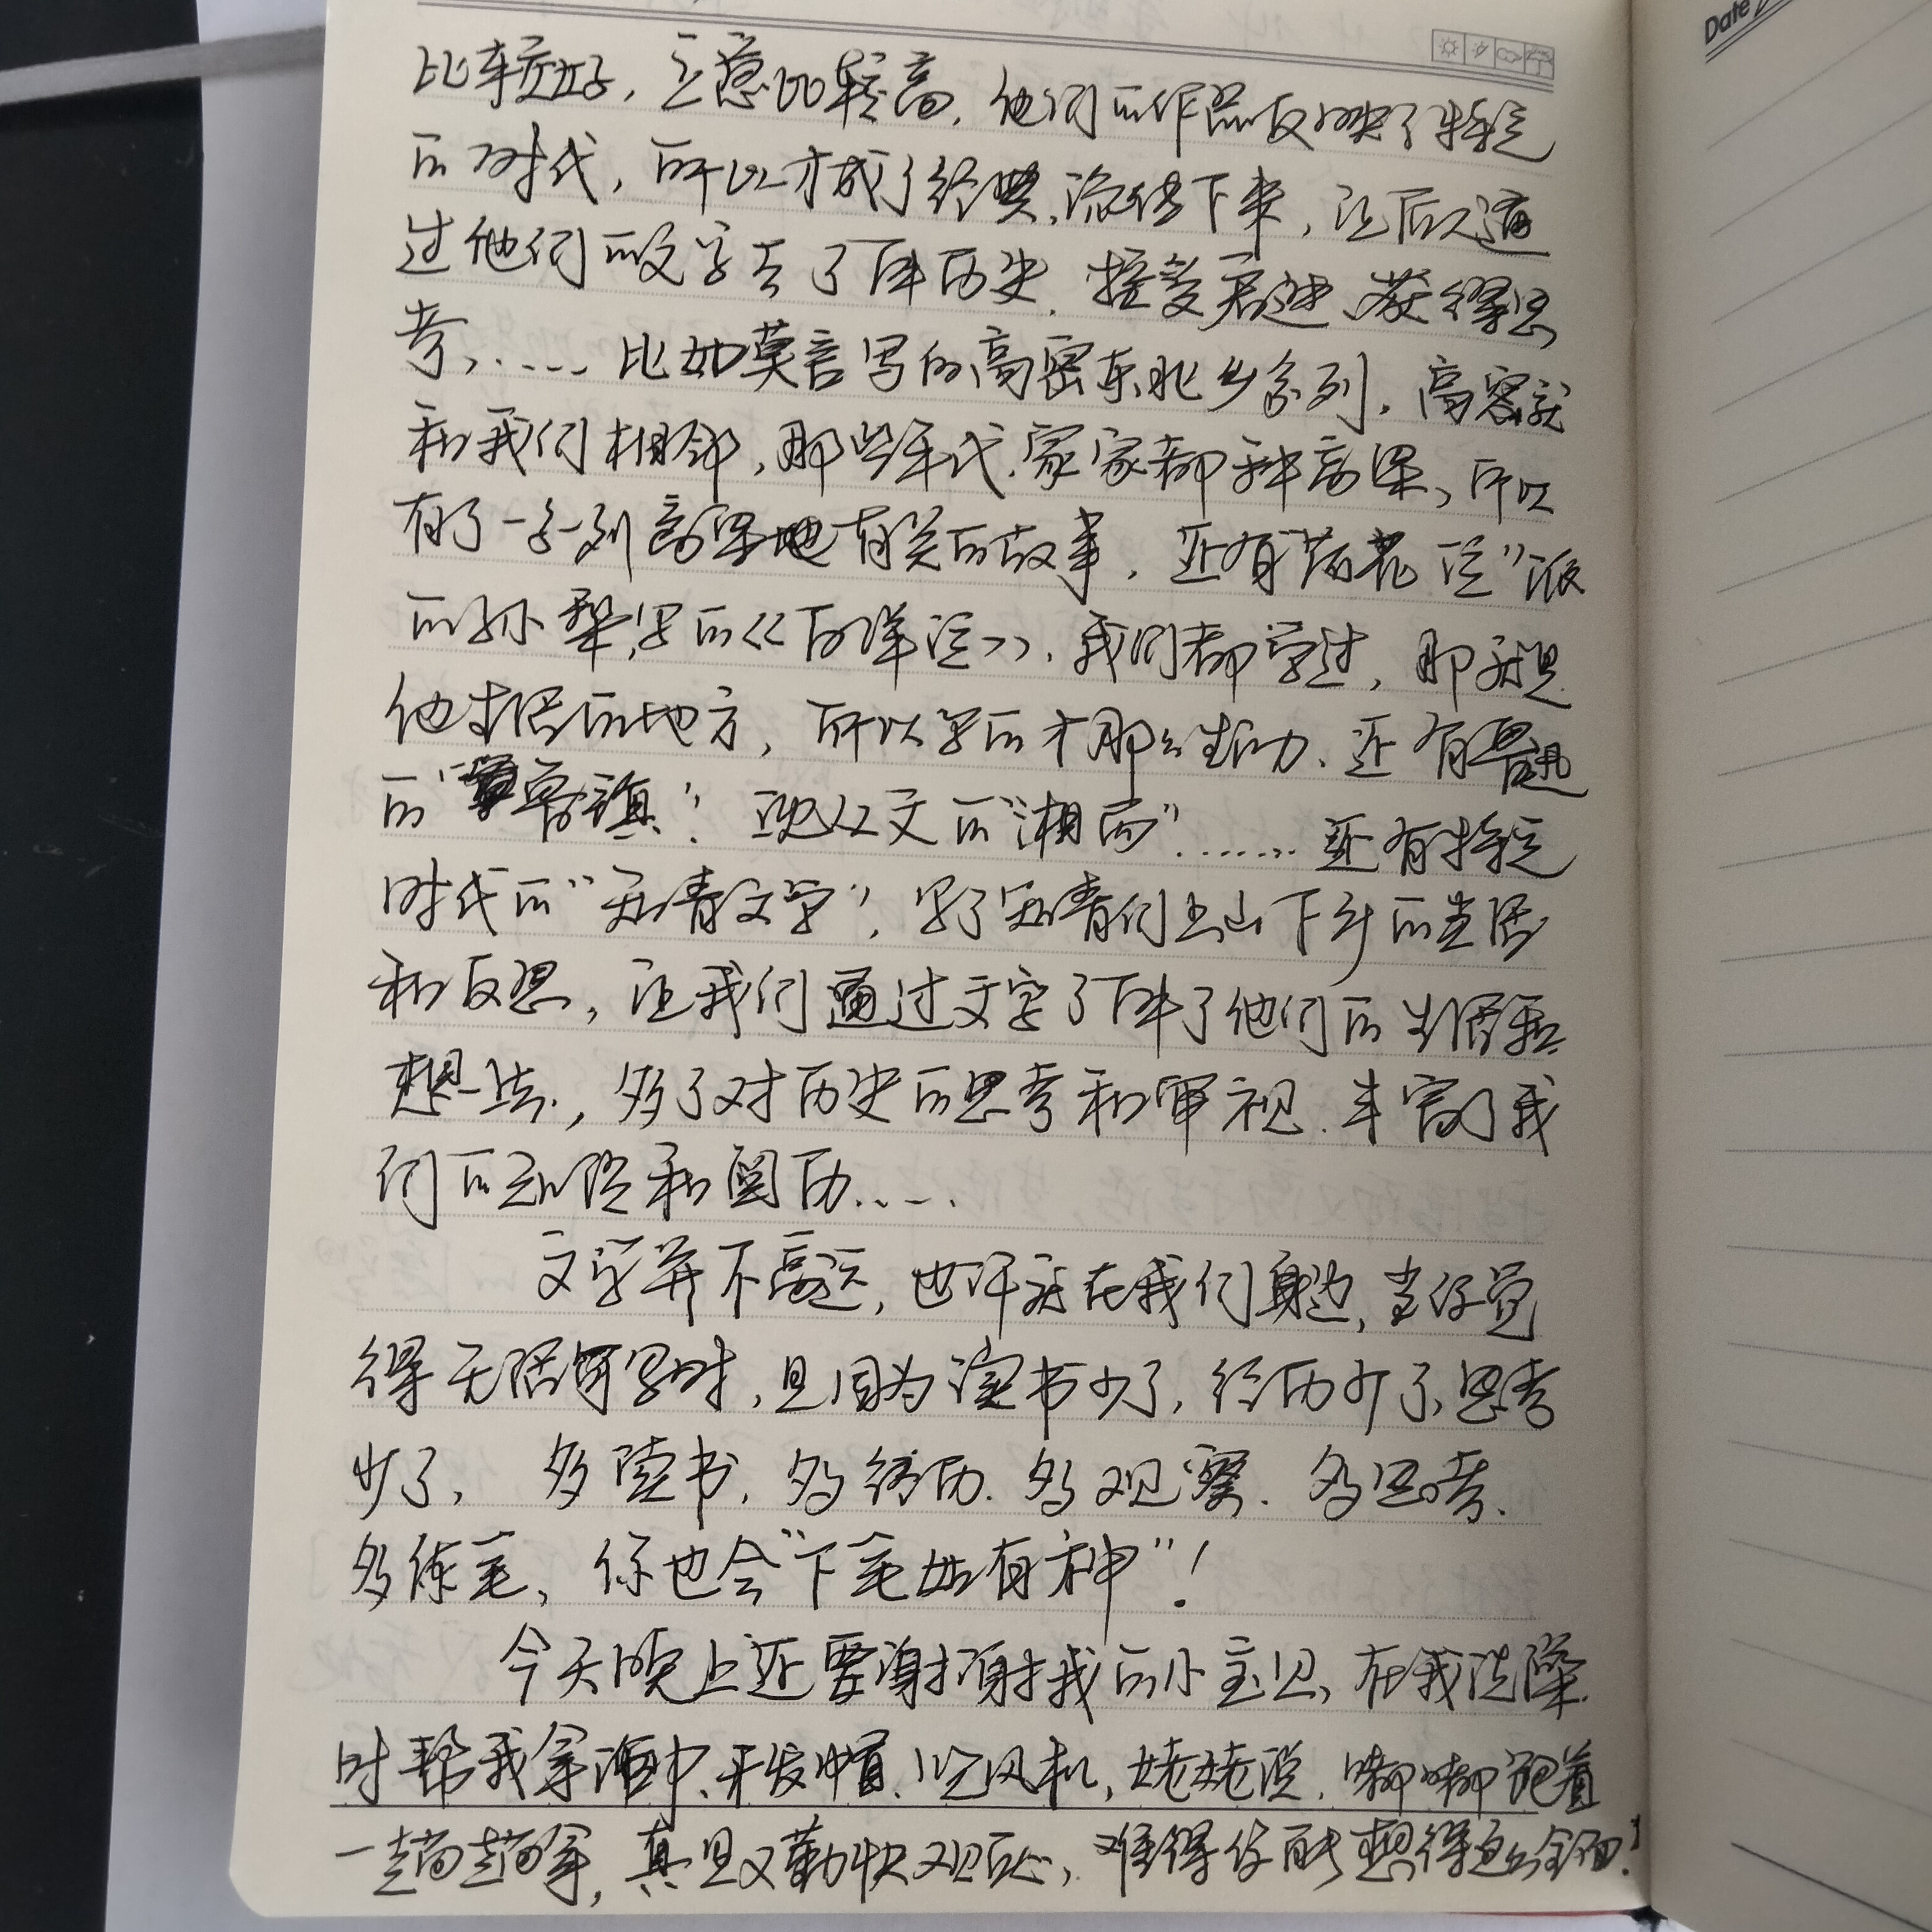 Date
比较好，立意比较高，他们的作品反映了特定
的时代，所以才成了经典，流传下来，让后人通
过他们的文字去了解历史，接受 获得思
考，…… 比如莫言写的高密东北乡系列，高密就
和我们相邻，那些年代，家家都种高粱，所以
有了一系列高粱地有关的故事，还有“荷花淀”派
的孙犁，写的《白洋淀》，我们都学过，那就是
他生活的地方，所以写的才那么生动、还有鲁迅
的“鲁镇”，沈从文的“湘西”……还有特定
时代的“知青文学”，写了知青们上山下乡的生活
和反思，让我们通过文字了解了他们的生活和
想法，多了对历史的思考和审视，丰富了我
们的知识和阅历……
文学并不高远，也许就在我们身边，当你觉
得无话可写时，是因为读书少了，经历少了，思考
少了，多读书，多经历，多观察，多思考，
多练笔，你也会“下笔如有神”！
今天晚上还要谢谢我的小宝贝，在我洗澡
时帮我拿浴巾、干发帽、吹风机，姥姥说，嘟嘟跑着
一趟趟拿，真是又勤快又贴心，难得你能想得这么全面！